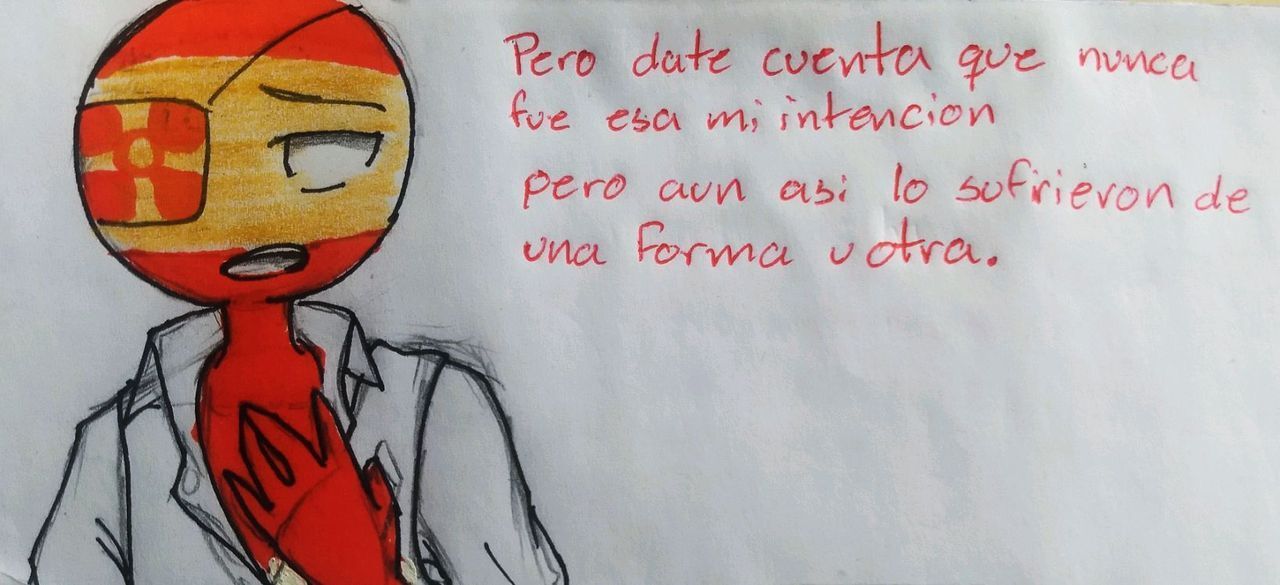 Pero date cuenta que nunca
fue esa mi intencion
pero aun asi lo sufrieron de
una forma u otra.